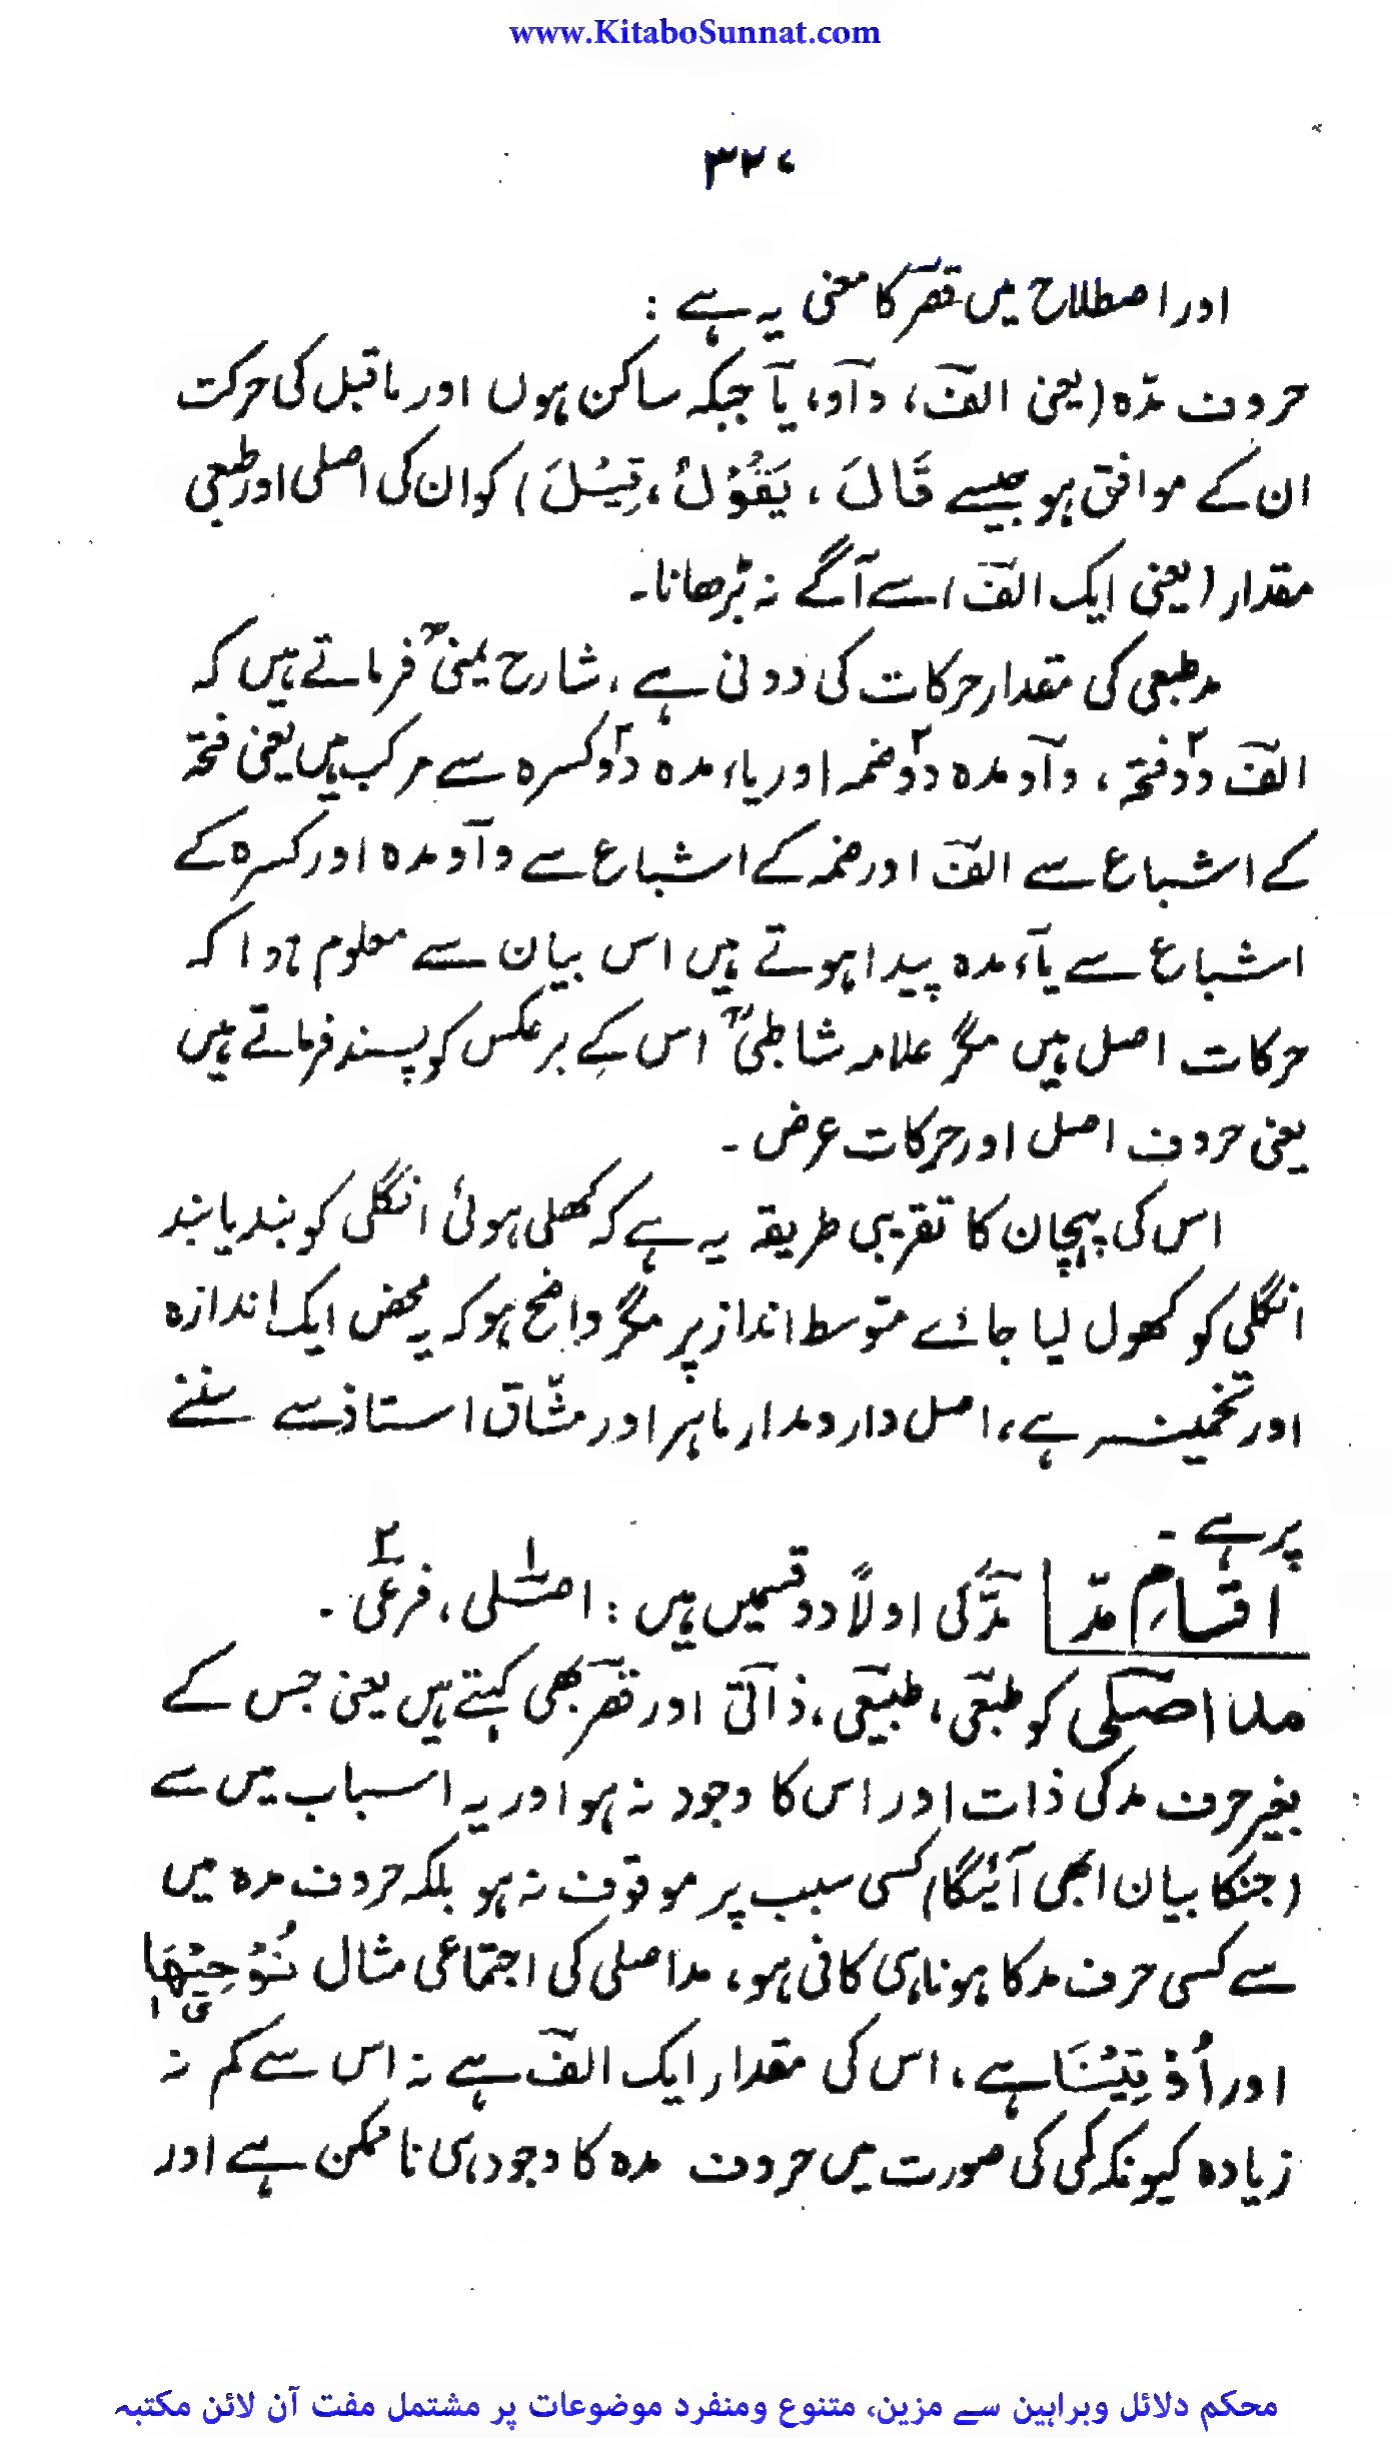 www.KitaboSunnat.com
۳۲۷
اور اصطلاح میں قصر کا معنی یہ ہے :
حروف مدّہ (یعنی الف، واو، یا جبکہ ساکن ہوں اور ماقبل کی حرکت
ان کے موافق ہو جیسے قَالَ ، یَقُوْلُ، قِیْلَ) کو ان کی اصلی اور طبعی
مقدار (یعنی ایک الف) سے آگے نہ بڑھانا۔
مد طبعی کی مقدار حرکات کی دونی ہے، شارح یمنیؒ فرماتے ہیں کہ
الف دو۲ فتحہ ، واو مدہ دو۲ ضمہ اور یاء مدہ دو۲ کسرہ سے مرکب ہیں یعنی فتحہ
کے اشباع سے الف اور ضمہ کے اشباع سے واو مدہ اور کسرہ کے
اشباع سے یاء مدہ پیدا ہوتے ہیں اس بیان سے معلوم ہوا کہ
حرکات اصل ہیں مگر علامہ شاطبیؒ اس کے برعکس کو پسند فرماتے ہیں
یعنی حروف اصل اور حرکات عرض ۔
اس کی پہچان کا تقریبی طریقہ یہ ہے کہ کھلی ہوئی انگلی کو بند یا بند
انگلی کو کھول لیا جائے متوسط انداز پر مگر واضح ہو کہ یہ محض ایک اندازہ
اور تخمینہ ہے، اصل دارومدار ماہر اور مشّاق استاذ سے سننے
پر ہے ۔
اقسامِ مدّ مدّ کی اولاً دو قسمیں ہیں : اصلی۱ ، فرعی۲ ۔
مد اصلی کو طبعی، طبیعی، ذاتی اور قصر بھی کہتے ہیں یعنی جس کے
بغیر حرف مد کی ذات اور اس کا وجود نہ ہو اور یہ اسباب میں سے
(جنکا بیان ابھی آئیگا) کسی سبب پر موقوف نہ ہو بلکہ حروف مدہ میں
سے کسی حرف مد کا ہونا ہی کافی ہو، مد اصلی کی اجتماعی مثال نُوْحِیْهَا
اور اُوْتِیْنَا ہے، اس کی مقدار ایک الف ہے نہ اس سے کم نہ
زیادہ کیونکہ کمی کی صورت میں حروف مدہ کا وجود ہی ناممکن ہے اور
محکم دلائل وبراہین سے مزین، متنوع ومنفرد موضوعات پر مشتمل مفت آن لائن مکتبہ